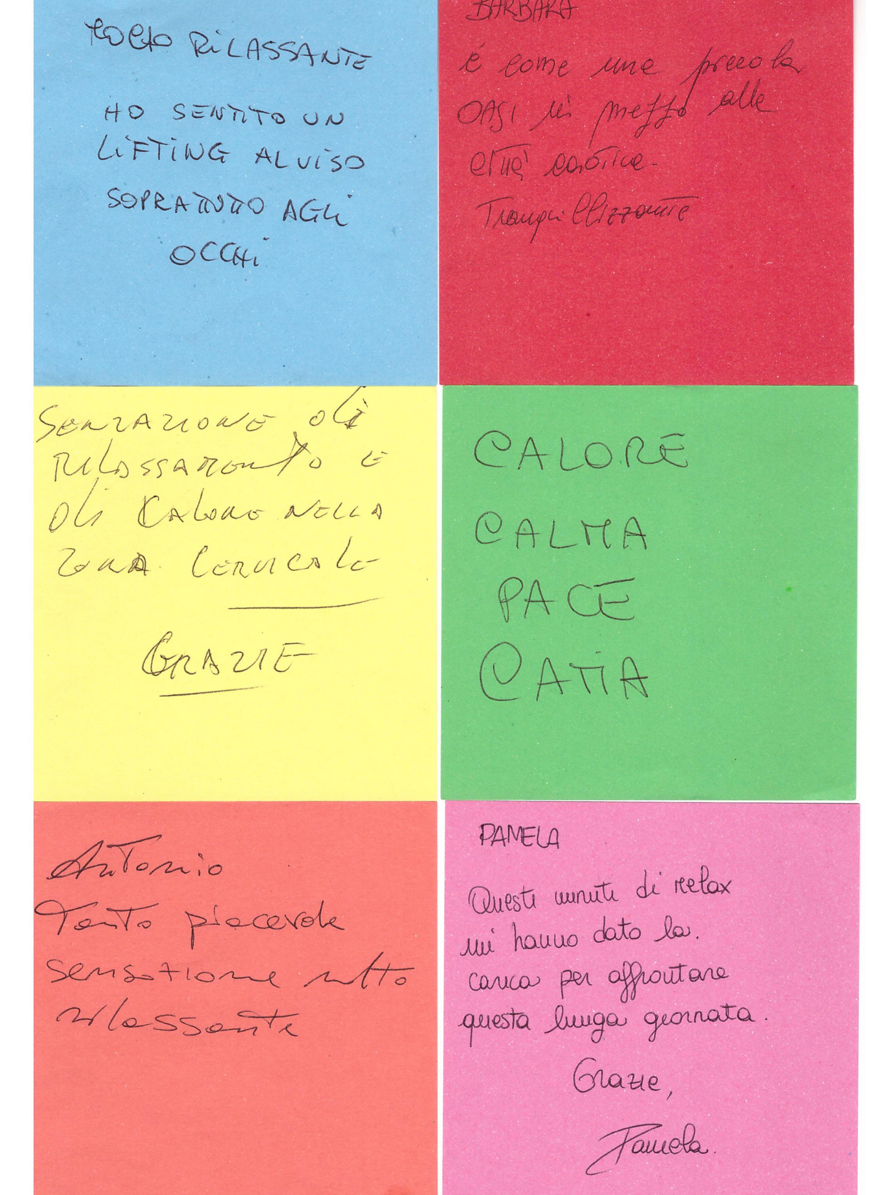 MOLTO RILASSANTE
HO SENTITO UN
LIFTING AL VISO
SOPRATTUTTO AGLI
OCCHI
BARBARA
è come una piccola
OASI in mezzo alla
città caotica.
Tranquillizzante
SENSAZIONE di
RILASSAMENTO E
Di CALORE NELLA
ZONA CERVICALE
GRAZIE
CALORE
CALMA
PACE
CATIA
Antonio
Tanto piacevole
sensazione molto
rilassante
PAMELA
Questi minuti di relax
mi hanno dato la
carica per affrontare
questa lunga giornata.
Grazie,
Pamela.